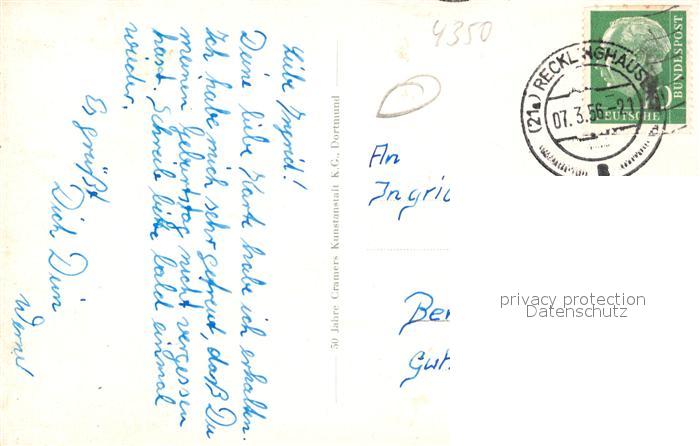 Liebe Ingrid!
Deine liebe Karte habe ich erhalten.
Ich habe mich sehr gefreut, daß Du
meinen Geburtstag nicht vergessen
hast. Schreibe bitte bald einmal
wieder.
Es grüßt
Dich Dein
Werner
50 Jahre Cramers Kunstanstalt K.G., Dortmund
4350
(21a) RECKLINGHAUS
07.3.56.-21
DEUTSCHE
BUNDESPOST
An
Ingri
Ber
Gut.
privacy protection
Datenschutz